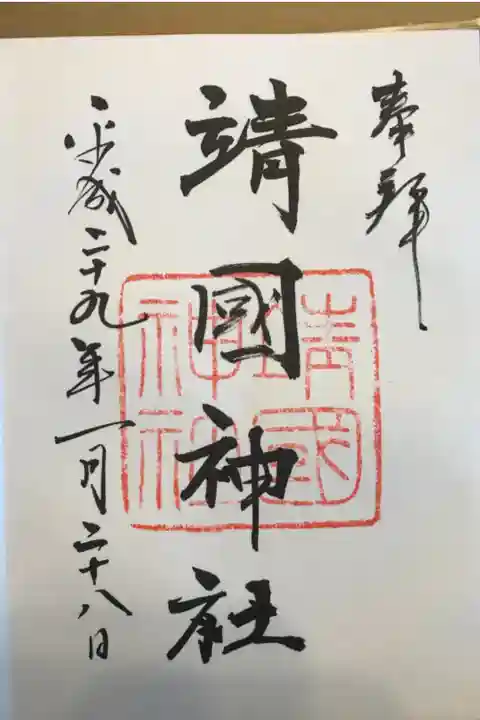 奉拝
靖國神社
靖国神社
平成二十九年一月二十八日